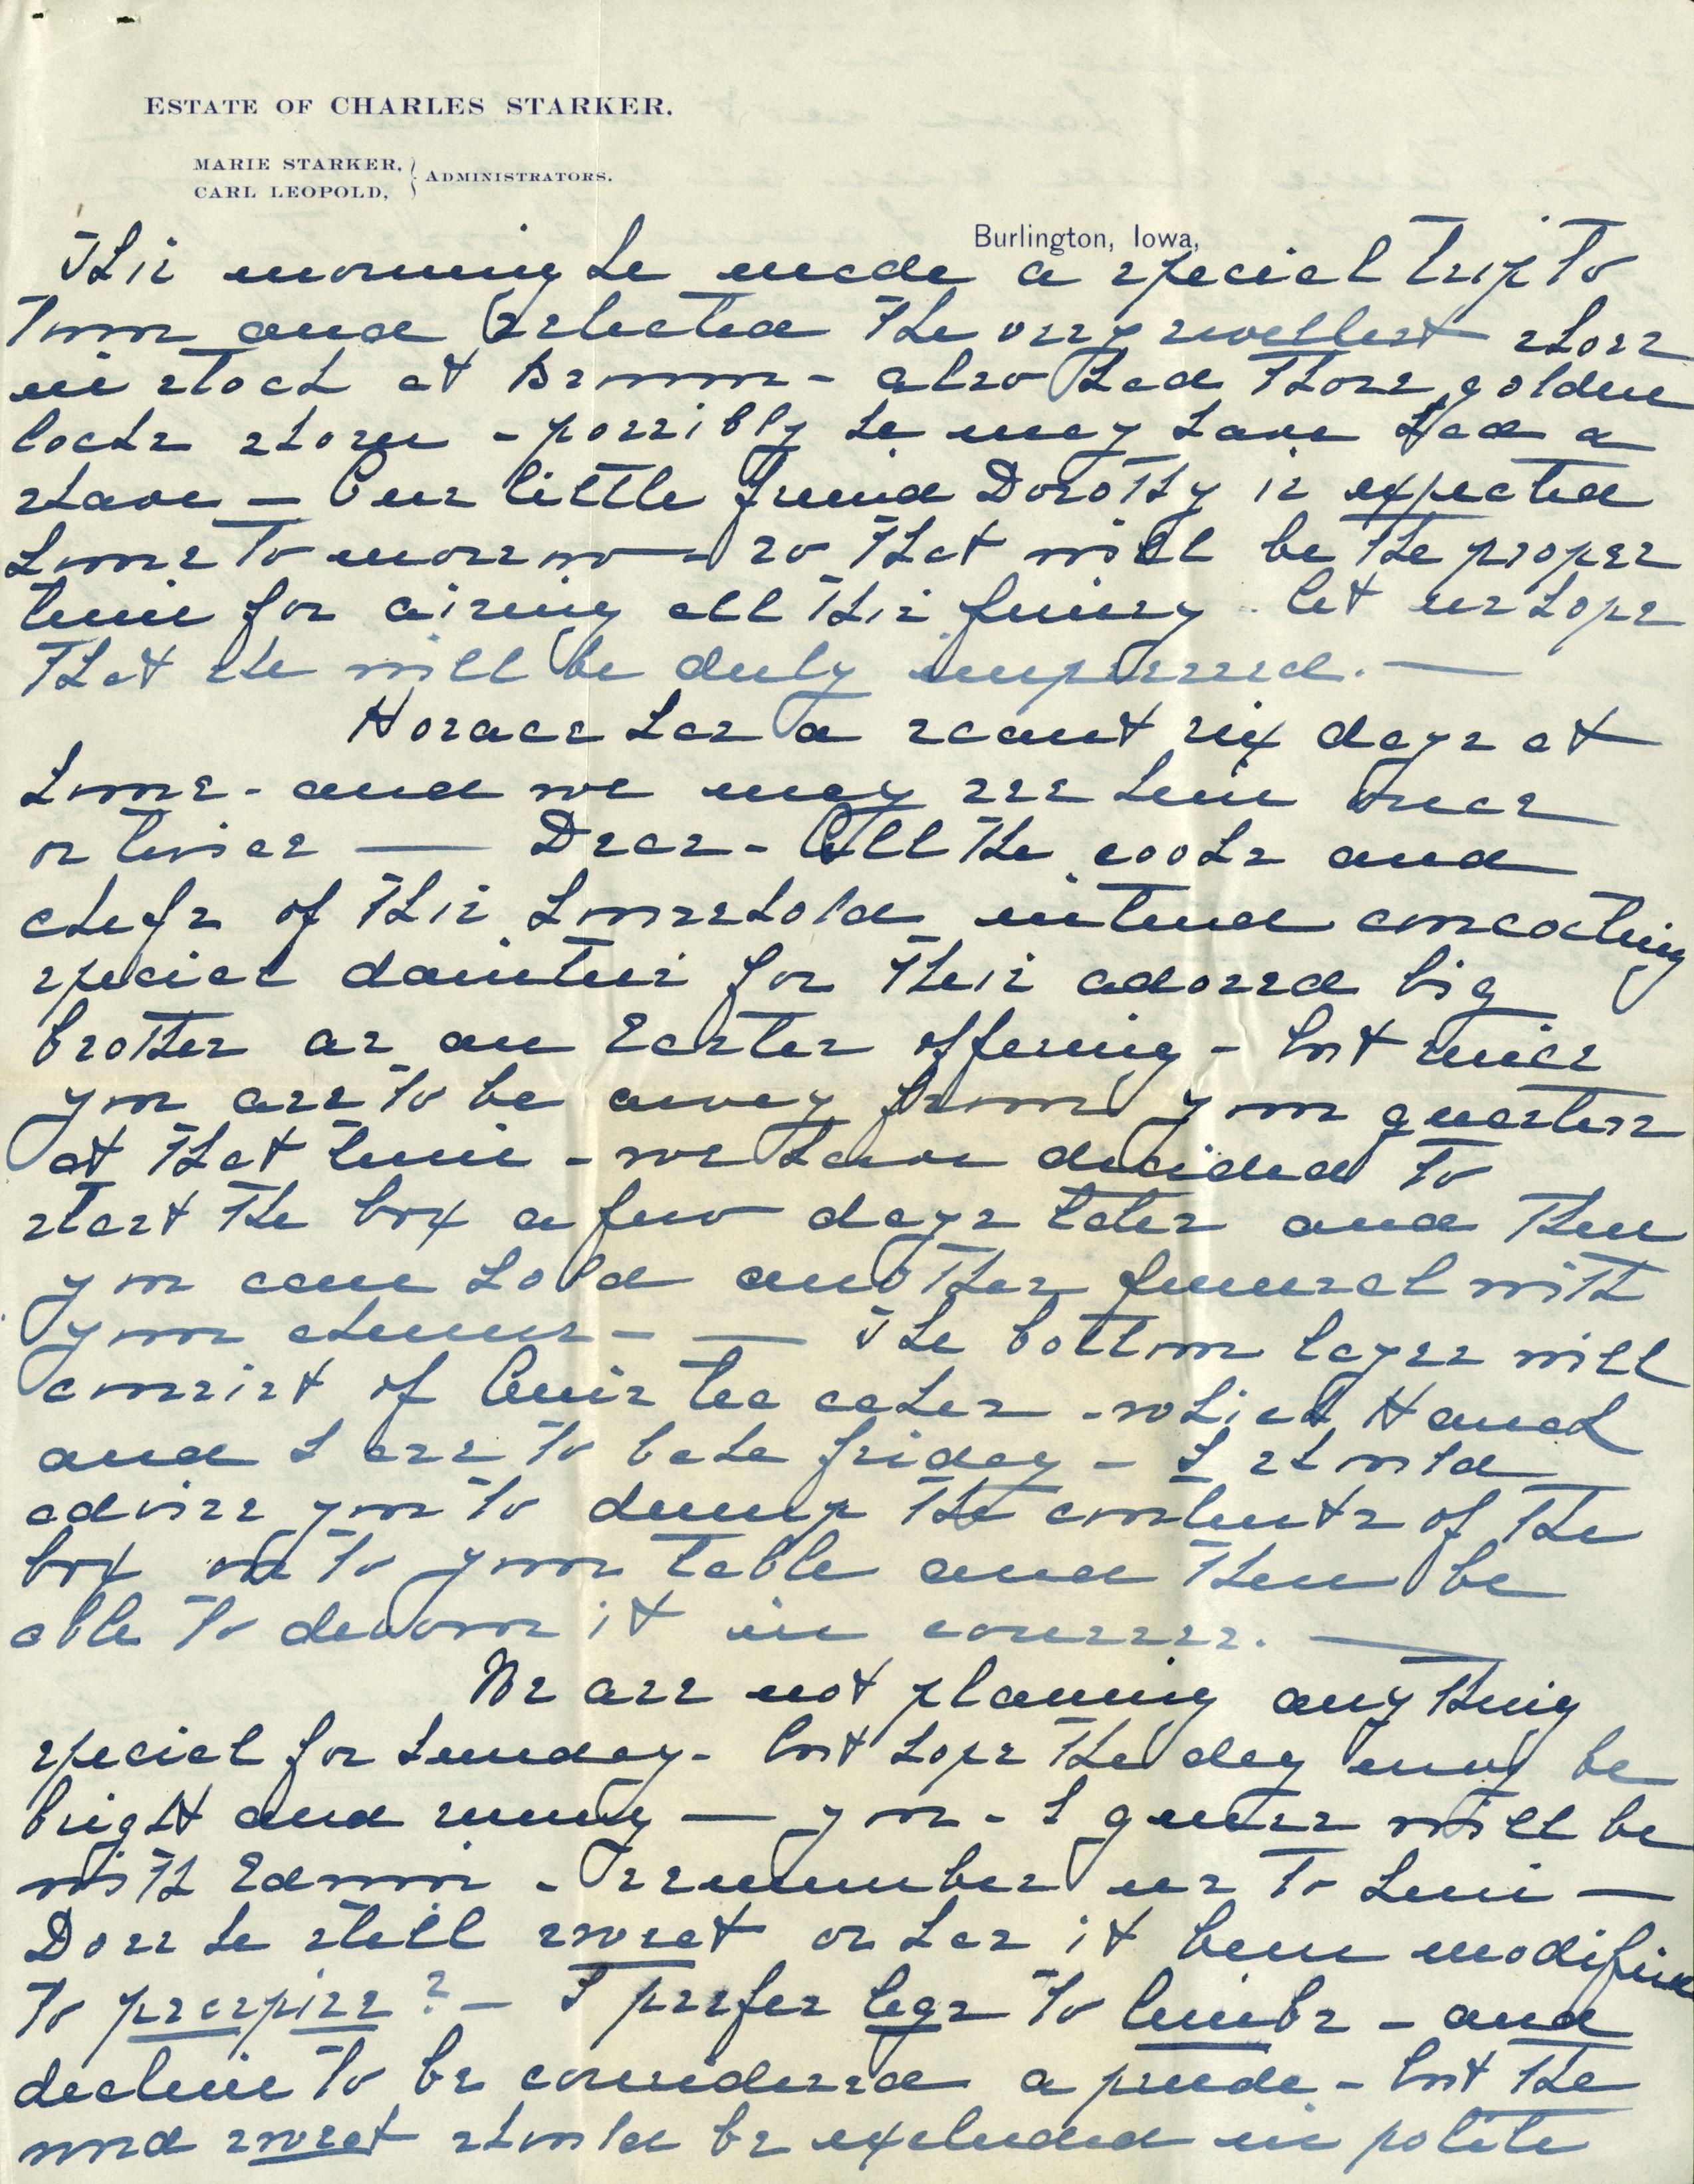 ESTATE OF CHARLES STARKER.
MARIE STARKER,
CARL LEOPOLD,
ADMINISTRATORS.
Burlington, Iowa,
This morning he made a special trip to
town and selected the very swellest shoes
in stock at Brown - also had those golden
locks shorn - possibly he may have had a
shave — Our little friend Dorothy is expected
home tomorrow - so that will be the proper
time for airing all this finery - let us hope
that she will be duly impressed. —
Horace has a scant six days at
home - and we may see him once
or twice — Dear - All the cooks and
chefs of this household intend concocting
special dainties for their adored big
brother as an Easter offering - but since
you are to be away from your quarters
at that time - we have decided to
start the box a few days later and then
you can hold another funeral with
your chums - — The bottom layer will
consist of Anis tea cakes - which Hanch
and I are to bake friday - I should
advise you to dump the contents of the
box on to your table and then be
able to devour it in courses. —
We are not planning anything
special for Sunday - but hope the day may be
bright and sunny — you - I guess will be
with Edwin - remember us to him —
Does he still sweat or has it been modified
to perspire? - I prefer legs to limbs - and
decline to be considered a prude - but the
word sweat should be excluded in polite